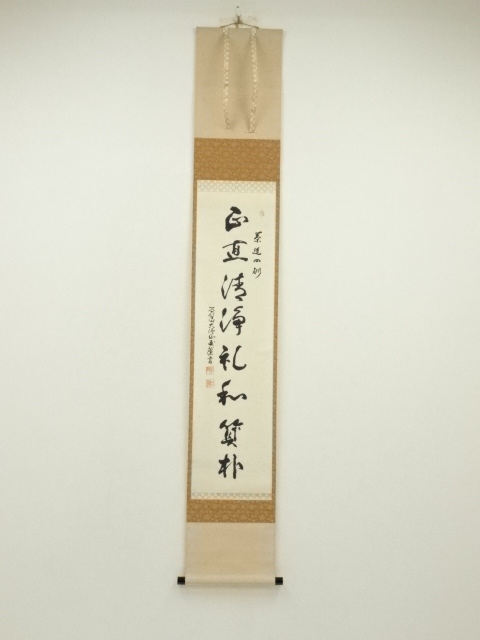 茶道四則
正直清浄礼和質朴